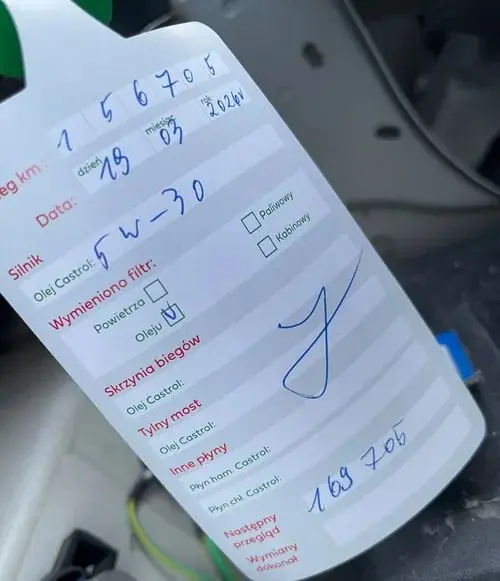 eg km: 1 5 6 7 0 5
Data: dzień 19 miesiąc 03 rok 2024r
Silnik
Olej Castrol: 5W-30
Wymieniono filtr:
Powietrza Paliwowy
Oleju Kabinowy
Skrzynia biegów
Olej Castrol:
Tylny most
Olej Castrol:
Inne płyny
Płyn ham. Castrol:
Płyn chł. Castrol:
Następny
przegląd 169 705
Wymiany
dokonał